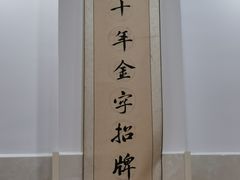 十年金字招牌